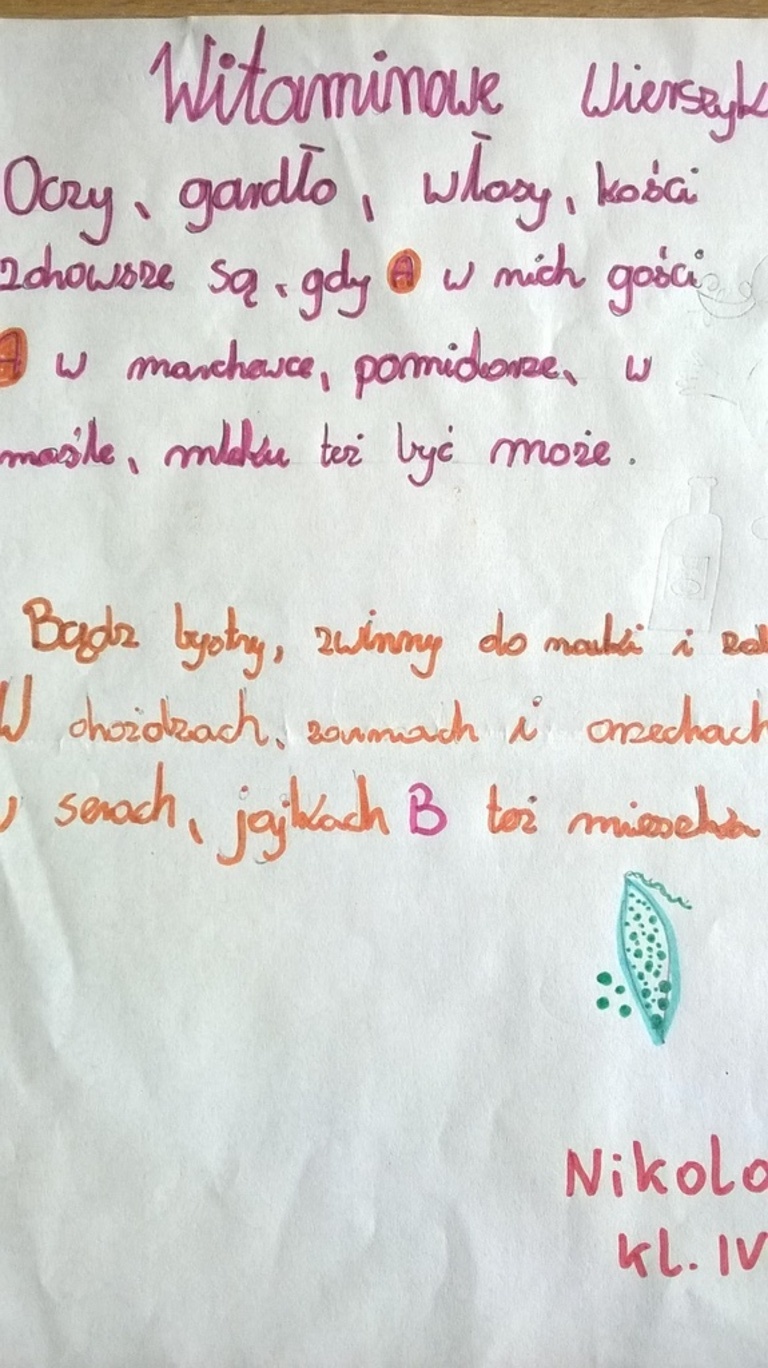 Witaminowe Wierszyk
Oczy, gardło, włosy, kości
zdrowsze są, gdy A w nich gości
A w marchewce, pomidorze, w
maśle, mleku też być może.
Bądz bystry, zwinny do nauki i
W drożdzach, ziarnach i orzechach
w serach, jajkach B też mieszka
Nikola
kl. IV